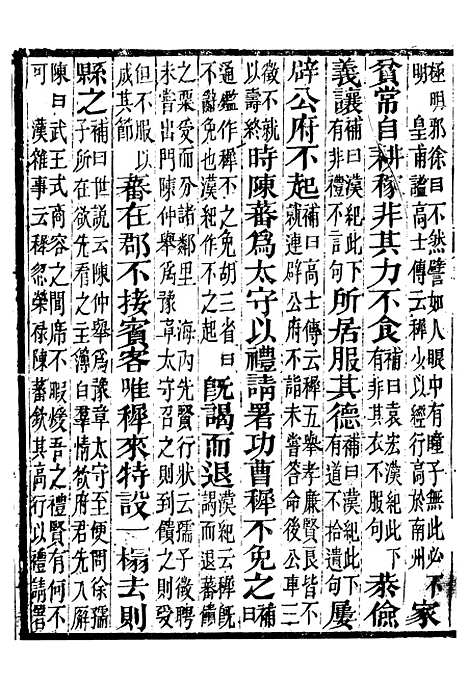 極明邪徐曰不然譬如人眼中有瞳子無此必不
明 皇甫謐高士傳云稺少以經行高於南州
家
貧常自耕稼非其力不食
補曰袁宏漢紀此下
有非其衣不服句
恭儉
義讓
補曰漢紀此下
有非禮不言句
所居服其德
補曰漢紀此下
有道不拾遺句
屢
辟公府不起
補曰高士傳云稺五舉孝廉賢
連辟公府不詣未嘗答命後公車三
徵不就
以壽終
時陳蕃爲太守以禮請署功曹稺不免之
補曰
通鑑作稺不之免胡三省曰
不免也漢紀作不就
既謁而退
漢紀云稺既
謁而退蕃饋
之粟受而分諸鄰里 海內先賢行狀云孺子徵聘
未嘗出門陳仲舉爲豫章太守召之則到饋之則受
但不服以
成其節
蕃在郡不接賓客唯稺來特設一榻去則
縣之
補曰世說云陳仲舉爲豫章太守至便問徐孺
子所在欲先看之主簿白羣情欲府君先入廨
陳曰武王式商容之閭席不暇煖吾之禮賢有何不
可 漢雜事云稺忽榮祿陳蕃欽其高行以禮請署